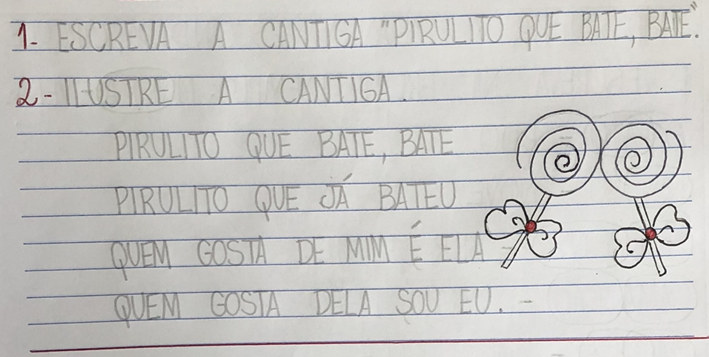 1- ESCREVA A CANTIGA "PIRULITO QUE BATE, BATE".
2- ILUSTRE A CANTIGA.
PIRULITO QUE BATE, BATE
PIRULITO QUE JÁ BATEU
QUEM GOSTA DE MIM É ELA
QUEM GOSTA DELA SOU EU. -